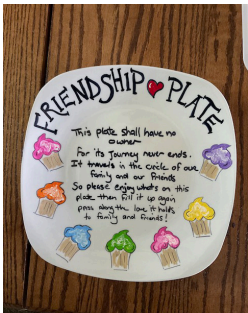 FRIENDSHIP PLATE
This plate shall have no
owner
For its Journey never ends.
It travels in the circle of our
family and our friends
So please enjoy whats on this
plate then fill it up again
pass along the love it holds
to family and friends!